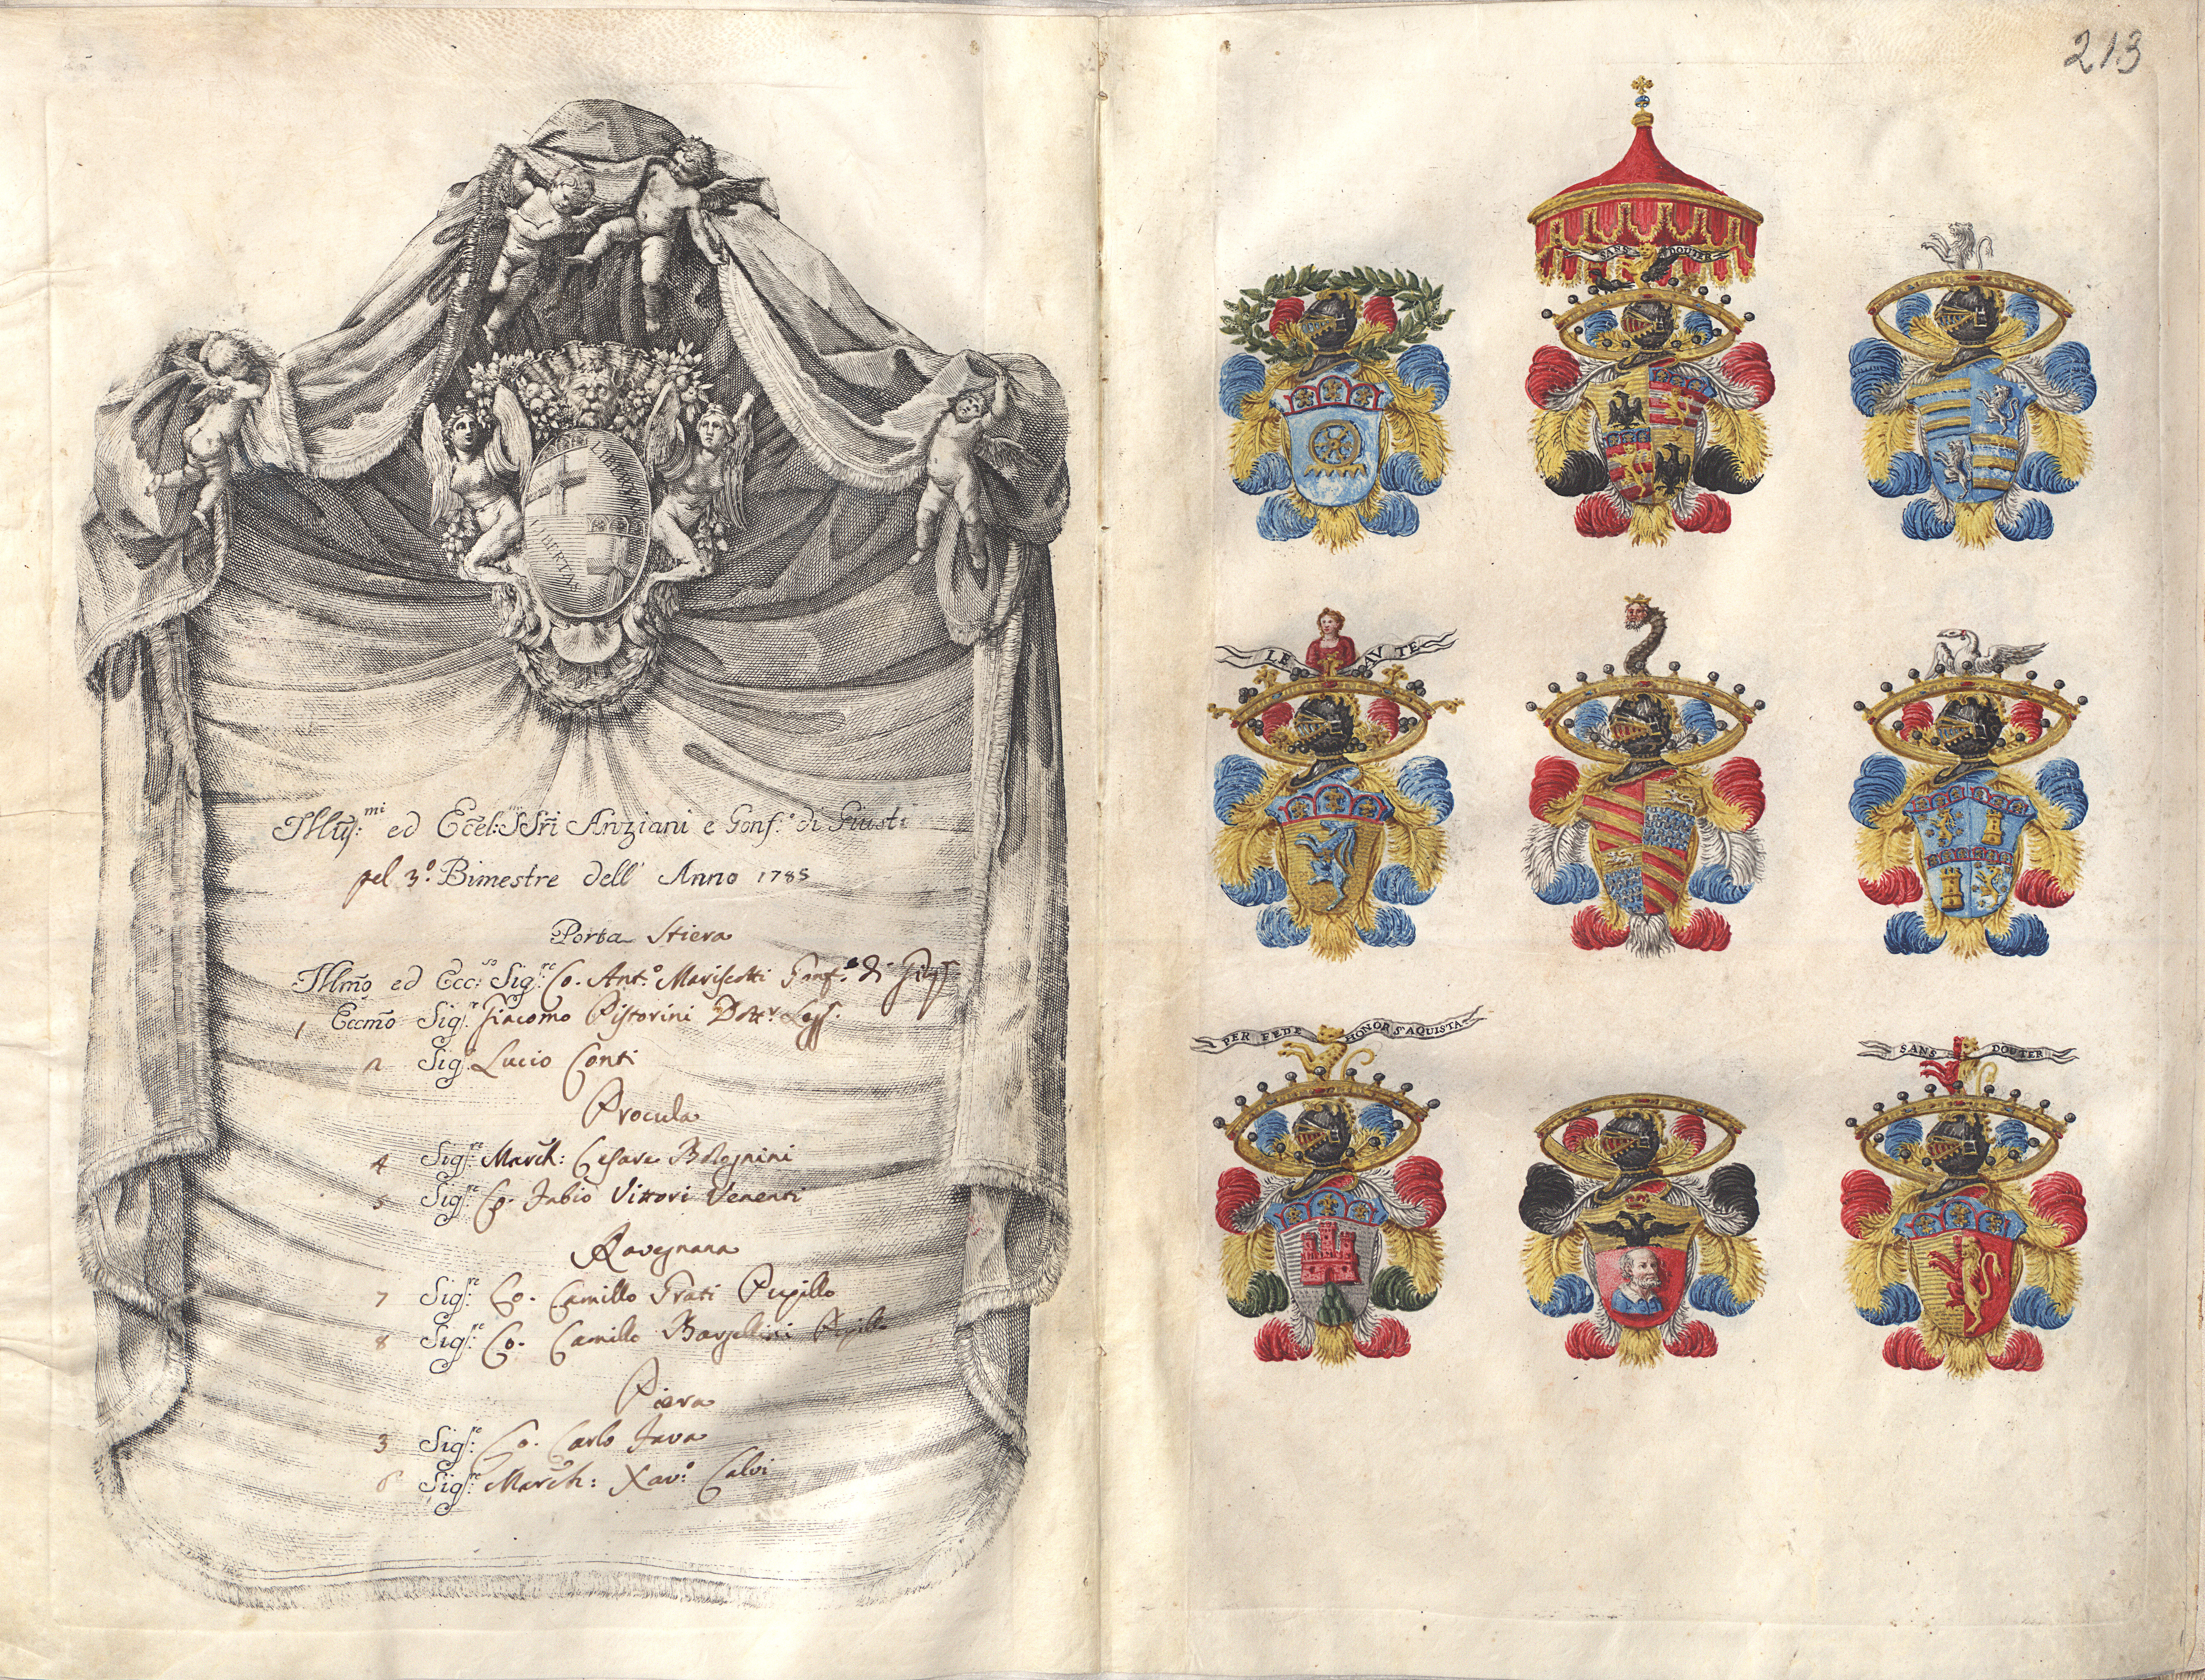 213
LIBERTAS
LIBERTAS
Illus:mi ed Eccel:mi SSri Anziani e Gonf.e di Giust:
pel 3.o Bimestre dell' Anno 1785
Porta Stiera
Illmo ed Ecc:so Sig.re Co. Ant.o Mariscotti Gonf.e di
1 Eccmo Sig.r Giacomo Pistorini Dott.r Legg.
2 Sig.r Lucio Conti
Procula
4 Sig.re March: Cesare Bolognini
5 Sig.re Co. Fabio Vittori Venenti
Ravegnana
7 Sig.re Co. Camillo Grati Pupillo
8 Sig.re Co. Camillo Bargellini Pupillo
Piera
3 Sig.re Co. Carlo Fava
6 Sig.re March: Xav.o Calvi
SANS DOUTER
LE AV TE
PER FEDE HONOR S'AQUISTA
SANS DOUTER